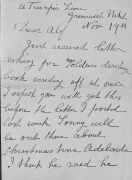 Greenwich
Nov 19th
Dear Alf
Just received letter
asking for Soldiers
book sending off at once
I expect you will get this
before the letter I posted
last week Sonny will
be out there about
Christmas from Adelaide
I think he said he